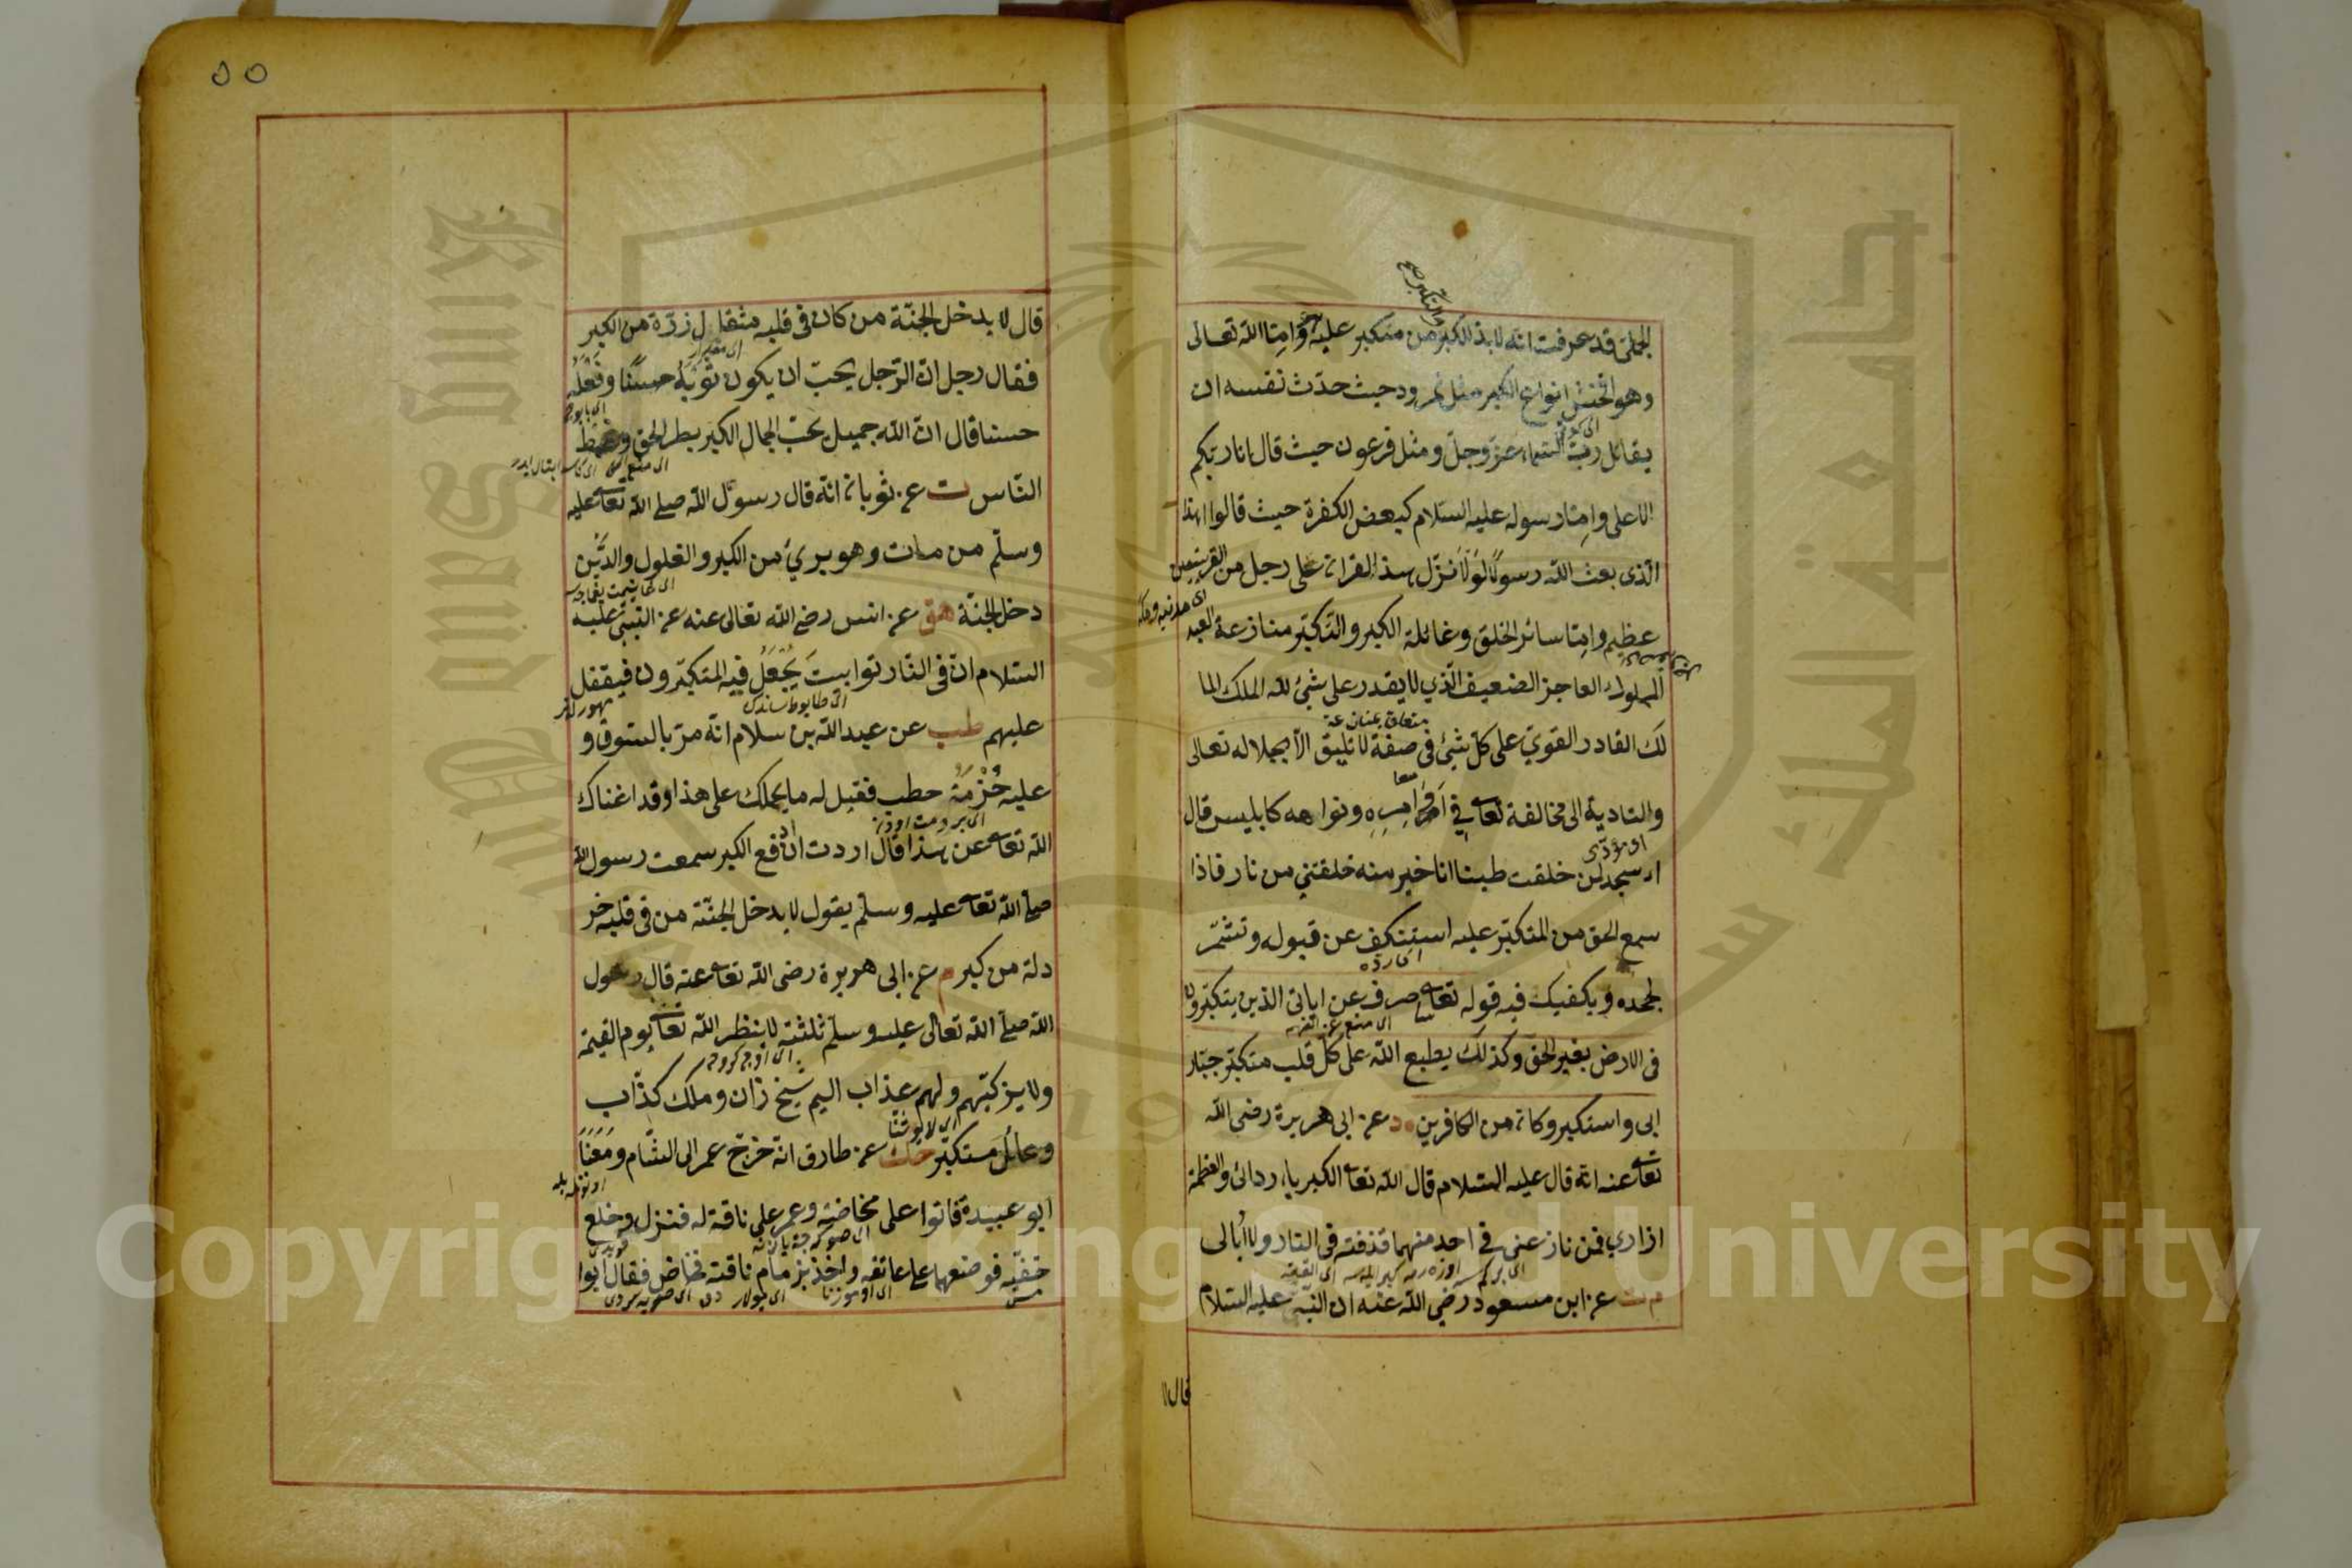 والتكبر صح
الجلي قد عرفت انه لا بد للكبر من متكبر عليه وامّا الله تعالى
وهو افحش انواع الكبر مثل نمرود حيث حدّث نفسه ان
يقاتل ربّ السّماء عزّ وجلّ ومثل فرعون حيث قال انا ربّكم
الاعلى وامّا رسوله عليه السّلام كبعض الكفرة حيث قالوا اهذا
الّذى بعث الله رسولا لولا نزّل هذا القران على رجل من القريتين
اى مدنيه ومكه
عظيم وامّا سائر الخلق وغائلة الكبر والتّكبّر منازعة العبد
المملوك العاجز الضعيف الّذي لا يقدر على شئ لله الملك الما
متعلق بمنازعة
لك القادر القوىّ على كلّ شئ في صفة لا تليق الاّ بجلاله تعالى
معا
والتادية الى مخالفة تعالى في اوامره ونواهه كابليس قال
او مؤدّى
ءاسجد لمن خلقت طينا انا خير منه خلقتني من نار فاذا
سمع الحق من المتكبّر عليه استنكف عن قبوله وتشمّر
لجحده ويكفيك فيه قوله تعالى ساصرف عن اياتى الذين يتكبّرون
فى الارض بغير الحق وكذلك يطبع الله على كلّ قلب متكبّر جبّار
ابى واستكبر وكان من الكافرين د عن ابى هريرة رضى الله
تعالى عنه انه قال عليه السّلام قال الله تعالى الكبرياء ردائى والعظمة
ازاري فمن نازعنى في احد منهما قذفته فى النّار ولا أبالى
م ت عن ابن مسعود رضي الله عنه ان النّبىّ عليه السّلام
قال لا
٥٥
قال لا يدخل الجنّة من كان فى قلبه مثقال زرّة من الكبر
اى مقدار
فقال رجل انّ الرّجل يحبّ ان يكون ثوبه حسنًا ونعله
حسنا قال انّ الله جميل يحبّ الجمال الكبر بطر الحق وغمط
النّاس ت عن ثوبان انّه قال رسول الله صلى الله تعالى عليه
وسلّم من مات وهو بريئ من الكبر والغلول والدّين
دخل الجنّة هق عن انس رضى الله تعالى عنه عن النّبىّ عليه
السّلام انّ فى النّار توابيت يُجْعَلُ فيه المتكبّرون فيقفل
عليهم طب عن عبد الله بن سلام انّه مرّ بالسّوق و
عليه حُزْمَةُ حطب فقيل له ما يحملك على هذا وقد اغناك
الله تعالى عن هذا قال اردت ان ادفع الكبر سمعت رسول الله
صلى الله تعالى عليه وسلّم يقول لا يدخل الجنّة من فى قلبه خر
دلة من كبر م عن ابى هريرة رضى الله تعالى عنه قال رسول
الله صلّى الله تعالى عليه وسلّم ثلثة لا ينظر الله تعالى يوم القيمة
ولا يزكّيهم ولهم عذاب اليم شيخ زان وملك كذّاب
وعائل مستكبّر حك عن طارق انّه خرج عمر الى الشّام ومعنا
ابو عبيدة فاتوا على مخاضة وعمر على ناقة له فنزل وخلع
خفّيه فوضعهما على عاتقه واخذ بزمام ناقته فخاض فقال ابوا